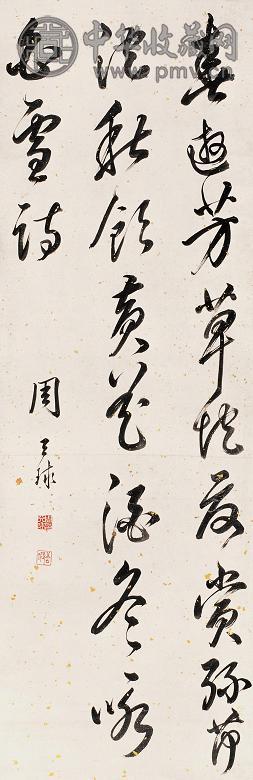 春遊芳草地夏賞綠荷
池秋飲黃花酒冬吟
白雪詩
周天球
中华收藏网
www.pmv.cn